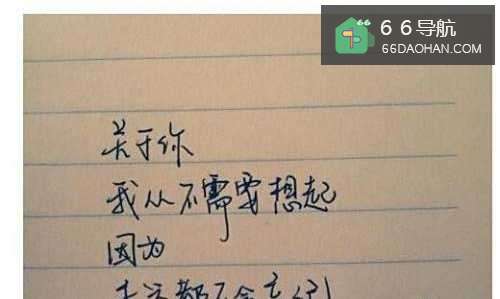 66导航
66DAOHAN.COM
关于你
我从不需要想起
因为